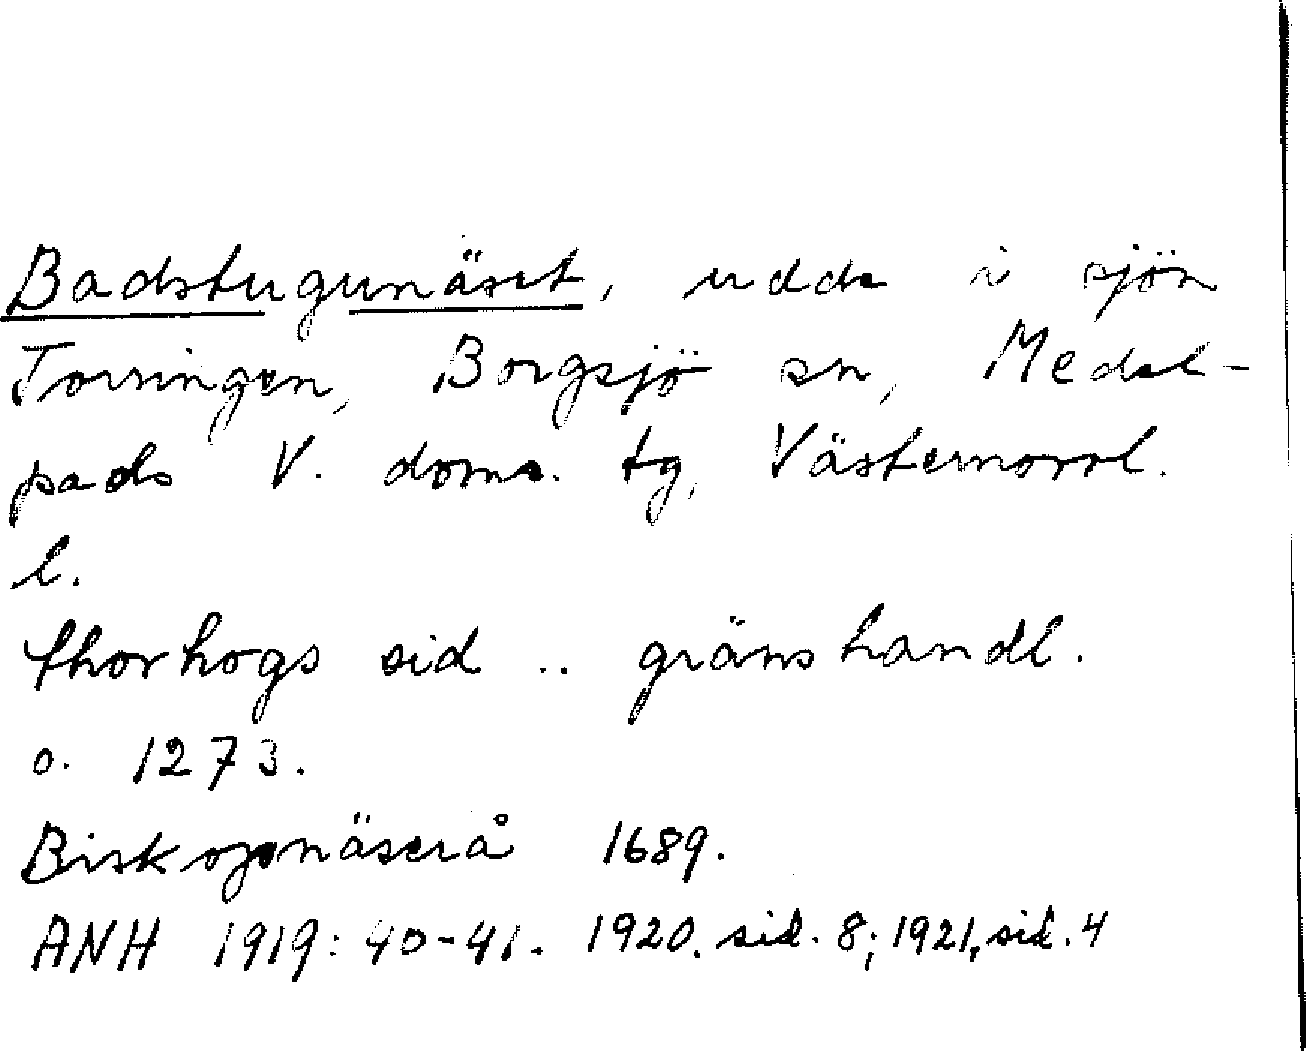 Badstugunäset, udde i sjön
Torringen, Borgsjö sn, Medel-
pads V. doms. tg, Västernorrl.
l.
thorhogs sid .. gränshandl.
o. 1273.
Biskopsnäserå 1689.
ANH 1919: 40-41. 1920. sid. 8; 1921, sid. 4